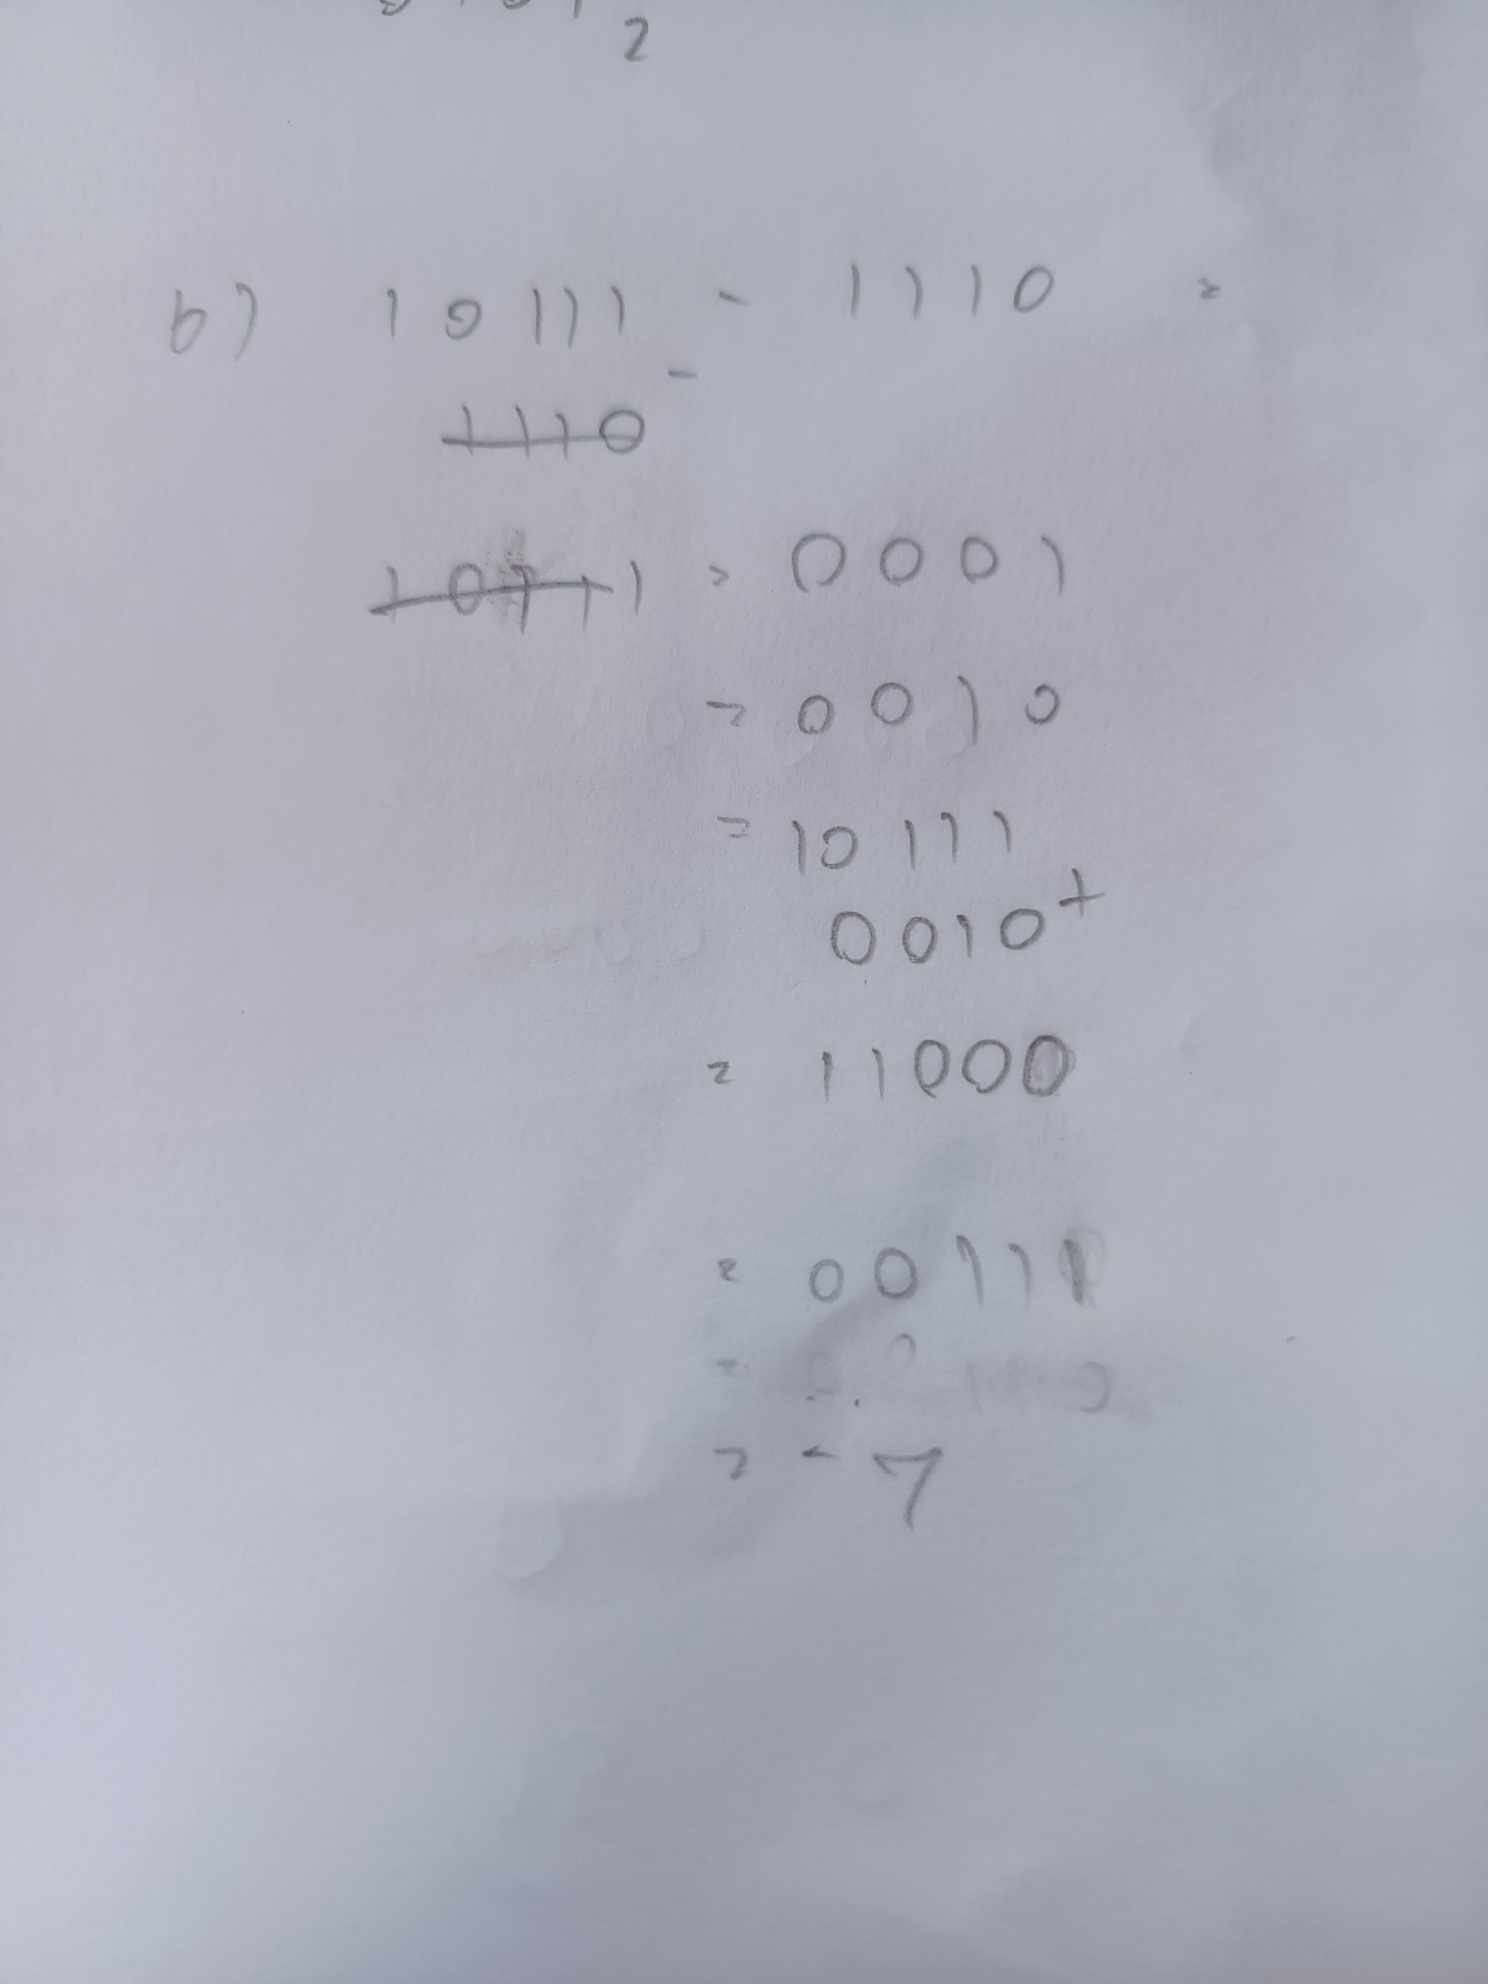 2
b) 10111 - 1110 =
-
1110
10111 = 0001
= 0010
= 10111
0010 +
= 11000
= 00111
= - 7